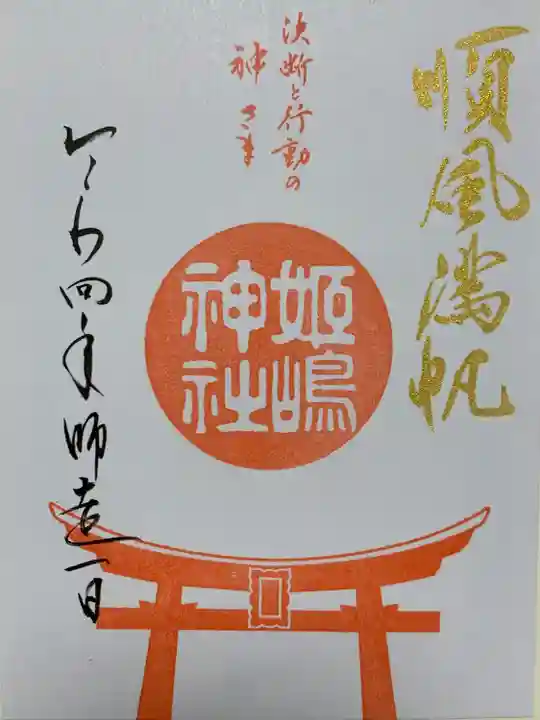 順風満帆
決断と行動の
神さま
姫嶋
神社
れいわ四年師走一日